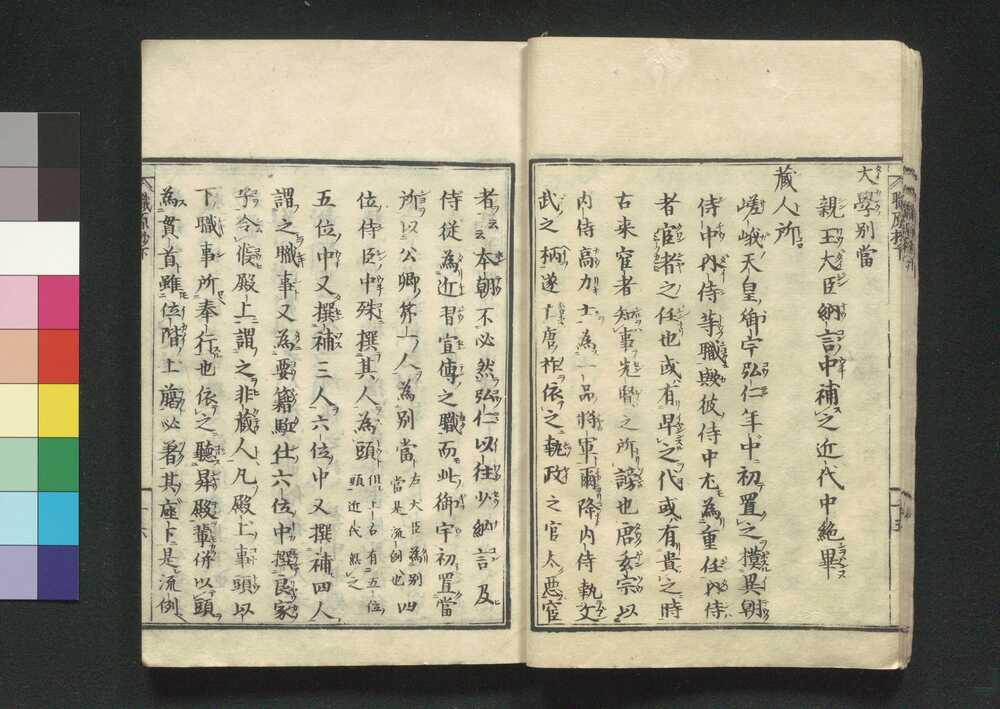 大學別當
親王大臣納言中補之近代中絶畢
蔵人所
嵯峨天皇御宇弘仁年中初置之摸異朝
侍中内侍等職歟彼侍中尤為重任内侍
者宦者之任也或有卑之代或有貴之時
古来宦者知事先賢之所謗也唐玄宗以
内侍高力士為一品將軍爾降内侍執文
武之柄遂亡唐祚依之執政之官太悪宦
者云云本朝不必然弘仁以往少納言及
侍従為近習宣傳之職而此御宇初置當
所以公卿第一人為別當
左大臣為別
當是流例也
四
位侍臣中殊撰其人為頭
但上古有五位
頭近代無之
五位中又撰補三人六位中又撰補四人
謂之職事又為要籍駈仕六位中撰良家
子令候殿上謂之非蔵人凡殿上事頭以
下職事所奉行也依之聽昇殿輩併以頭
為貫首雖位階上臈必著其座下是流例